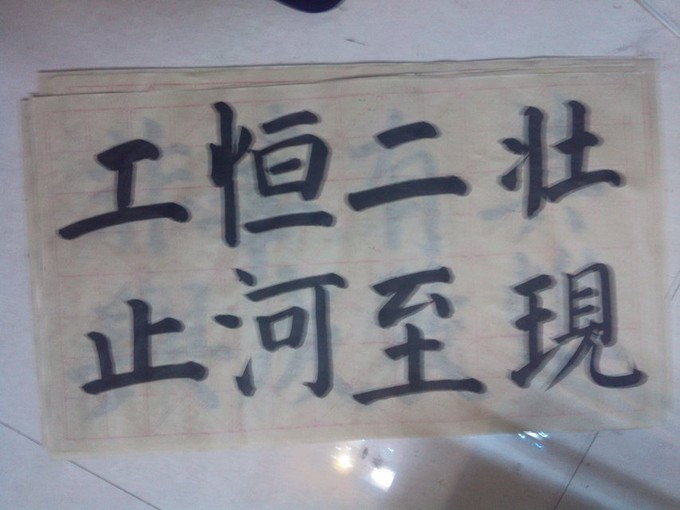 壮現
二至
恒河
工止